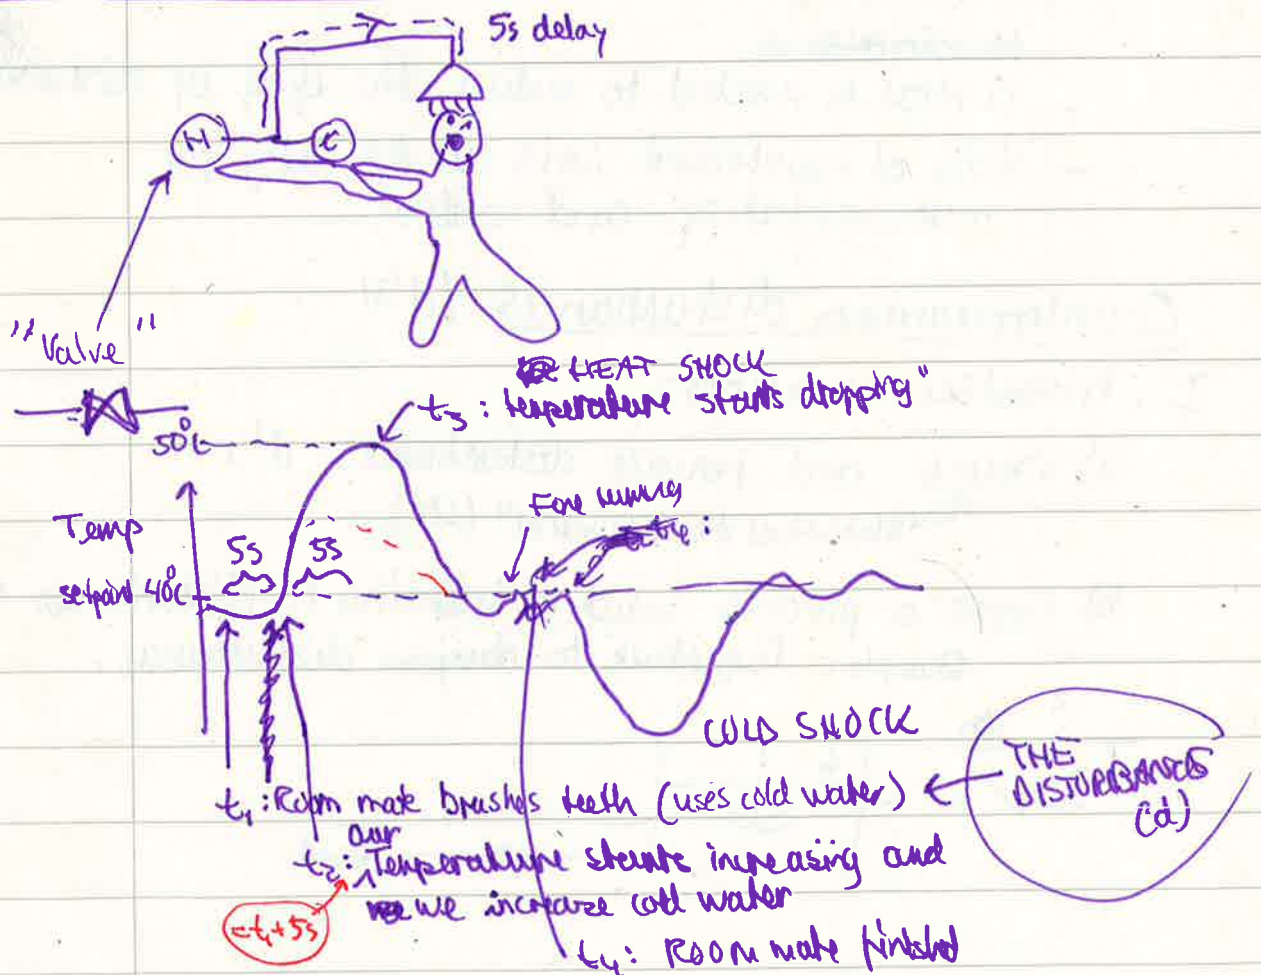 5s delay
H
C
"Valve"
HEAT SHOCK
t3: temperature starts dropping"
50°C
Fine tuning
t4:
Temp
5s
5s
setpoint 40°C
COLD SHOCK
THE
DISTURBANCE
(d)
t1: Room mate brushes teeth (uses cold water)
our
t2: Temperature starts increasing and
we increase cold water
= t1+5s
t4: Room mate finished